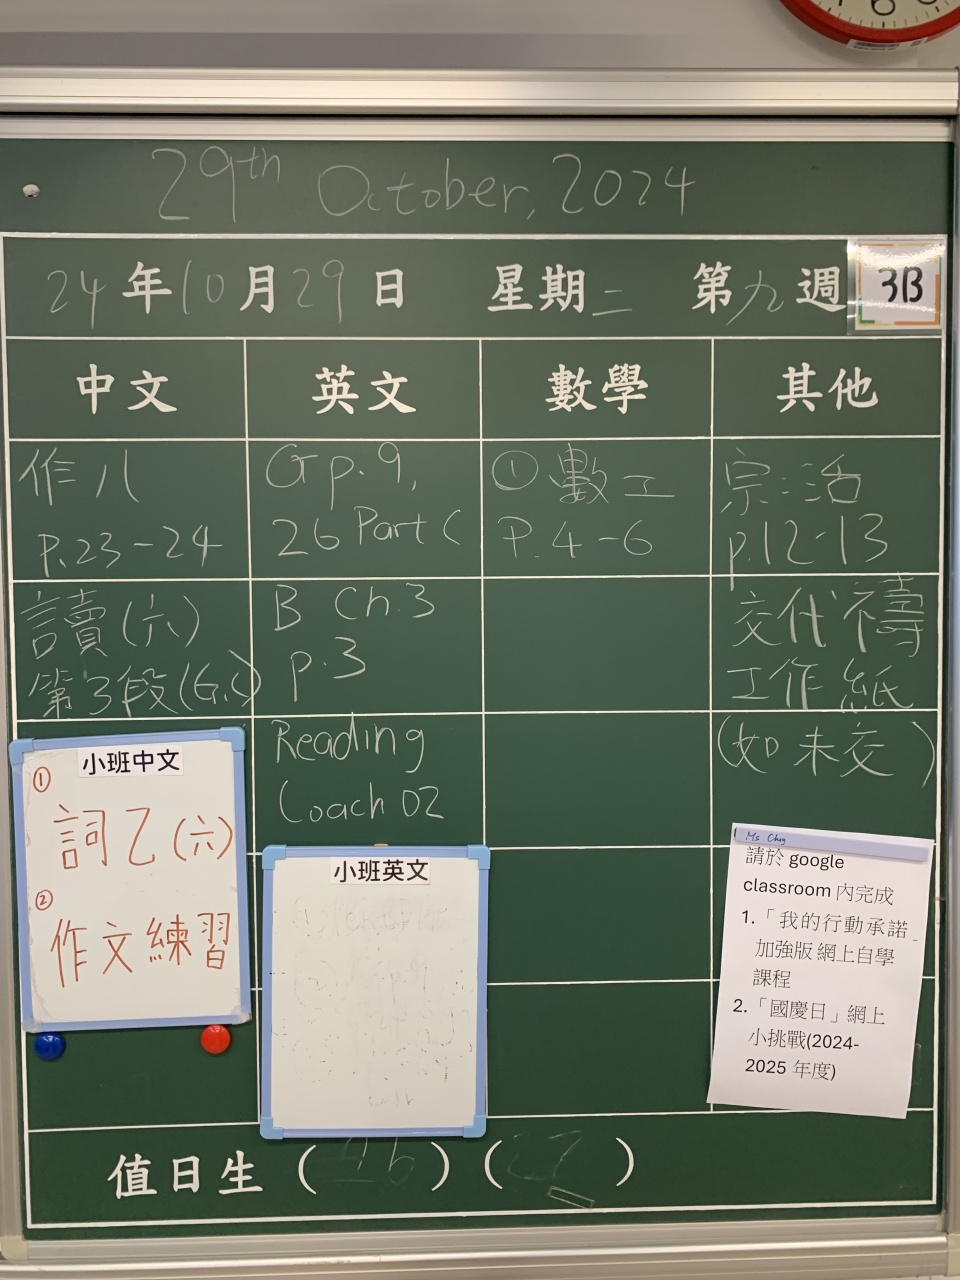 29th October, 2024
24年10月29日 星期二 第九週 3B
中文 英文 數學 其他
作八
p.23-24
讀(六)
第3段(G.C)
小班中文
① 詞乙(六)
② 作文練習
G p.9,
26 Part C
B Ch.3
p.3
Reading
Coach 02
小班英文
① 數工
P.4-6
宗:活
p.12-13
交代禱
工作紙
(如未交)
請於 google
classroom 內完成
1.「我的行動承諾-
加強版 網上自學
課程
2.「國慶日」網上
小挑戰(2024-
2025 年度)
值日生 ( ) ( )